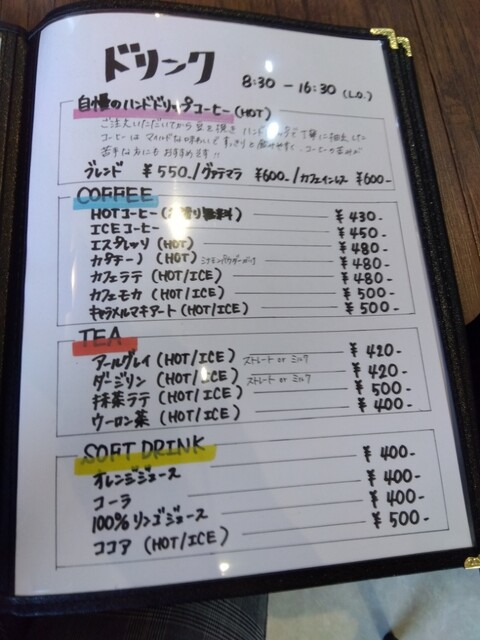 ドリンク 8:30 - 16:30 (L.O.)
自慢のハンドドリップコーヒー (HOT)
ご注文いただいてから豆を挽き ハンドドリップで丁寧に抽出した
コーヒーは マイルドな味わいで すっきりと飲みやすく コーヒーの苦みが
苦手な方にもおすすめです!!
ブレンド ¥550-/グァテマラ ¥600-/カフェインレス ¥600-
COFFEE
HOTコーヒー ¥430-
ICEコーヒー ¥450-
エスプレッソ (HOT) ¥480-
カプチーノ (HOT) シナモンパウダー ¥480-
カフェラテ (HOT/ICE) ¥480-
カフェモカ (HOT/ICE) ¥500-
キャラメルマキアート (HOT/ICE) ¥500-
TEA
アールグレイ (HOT/ICE) ストレート or ミルク ¥420-
ダージリン (HOT/ICE) ストレート or ミルク ¥420-
抹茶ラテ (HOT/ICE) ¥500-
ウーロン茶 (HOT/ICE) ¥400-
SOFT DRINK
オレンジジュース ¥400-
コーラ ¥400-
100%リンゴジュース ¥400-
ココア (HOT/ICE) ¥500-